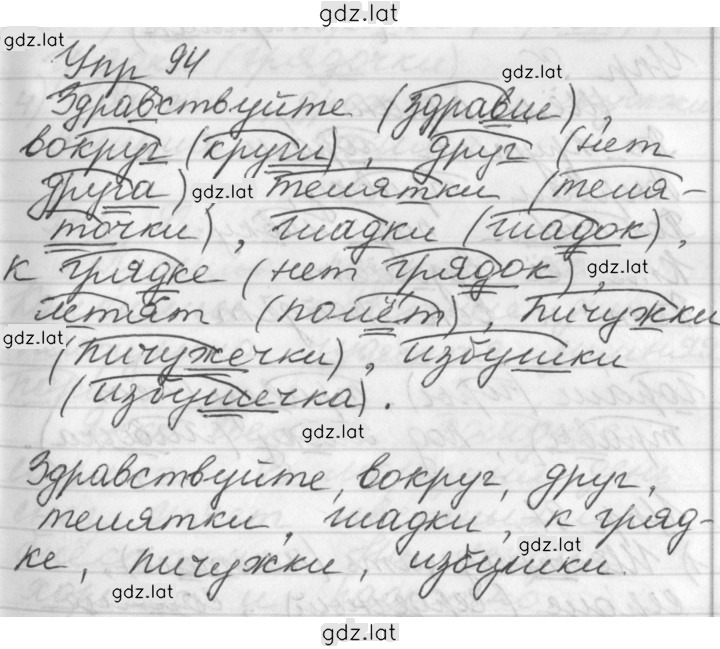 gdz.lat
gdz.lat
Упр 94
gdz.lat
Здравствуйте (здравие),
вокруг (круги), друг (нет
друга), gdz.lat телятки (теля-
точки), гладки (гладок),
к грядке (нет грядок), gdz.lat
летят (полёт), пичужки
gdz.lat
(пичужечки), избушки
(избушечка).
gdz.lat
Здравствуйте, вокруг, друг,
телятки, гладки, к гряд-
ке, пичужки, избушки.
gdz.lat
gdz.lat
gdz.lat